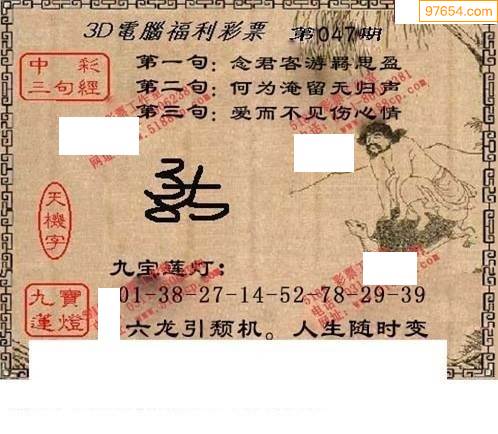 97654.com
3D電腦福利彩票 第047期
中彩
三句經
第一句：念君客游羁思盈
第二句：何为淹留无归声
第三句：爱而不见伤心情
天機字
九宝莲灯：
九寶
蓮燈
01-38-27-14-52-78-29-39
六龙引颈机。人生随时变